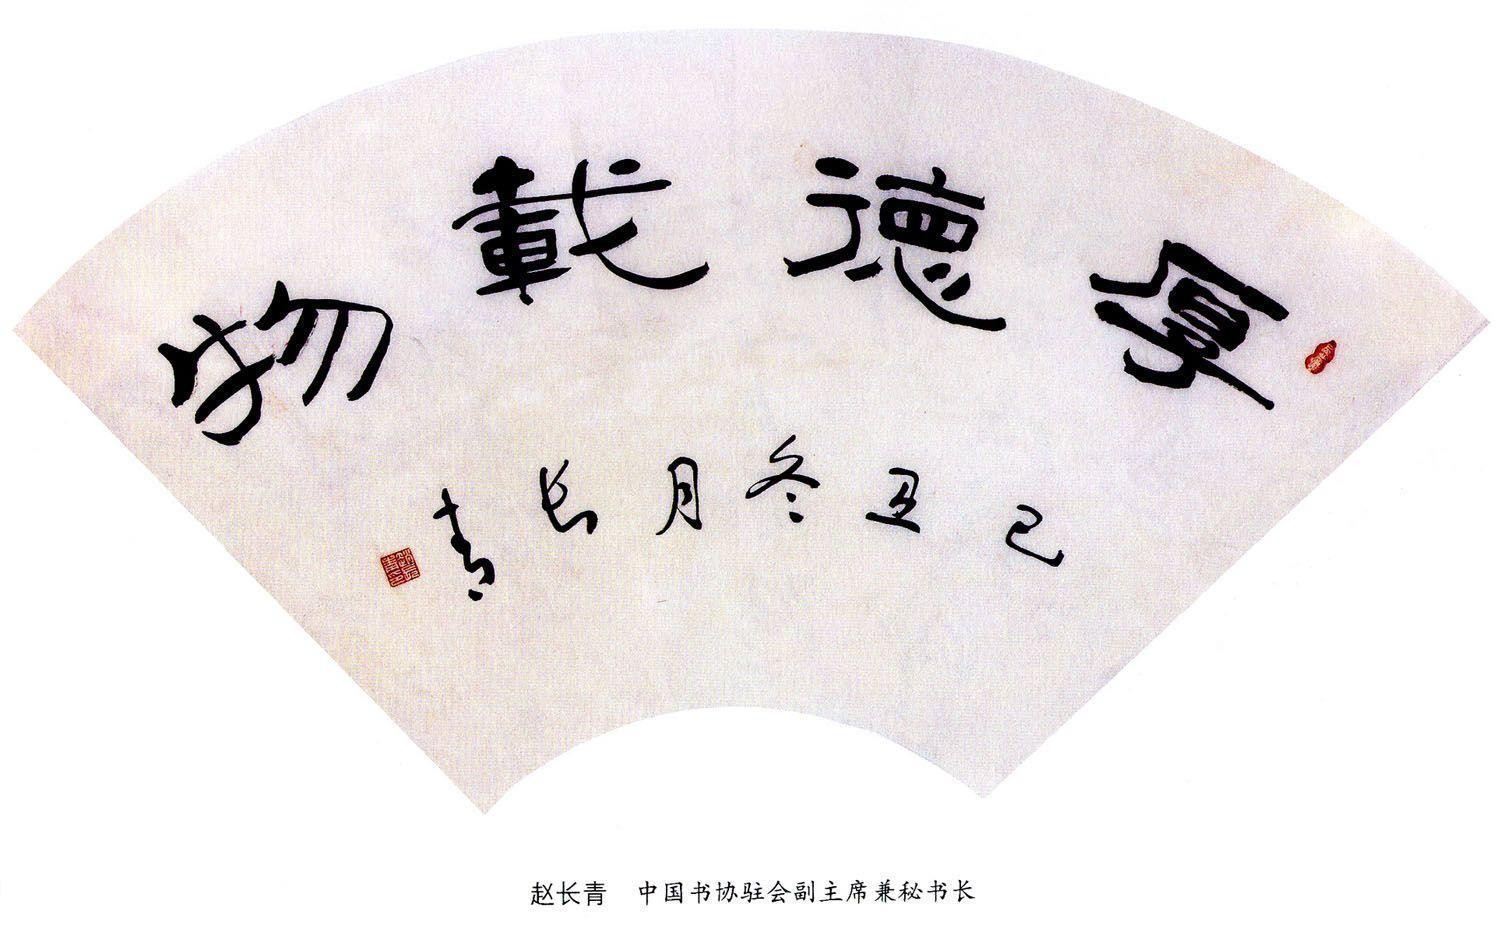 厚德載物
己丑冬月長青
赵长青 中国书协驻会副主席兼秘书长